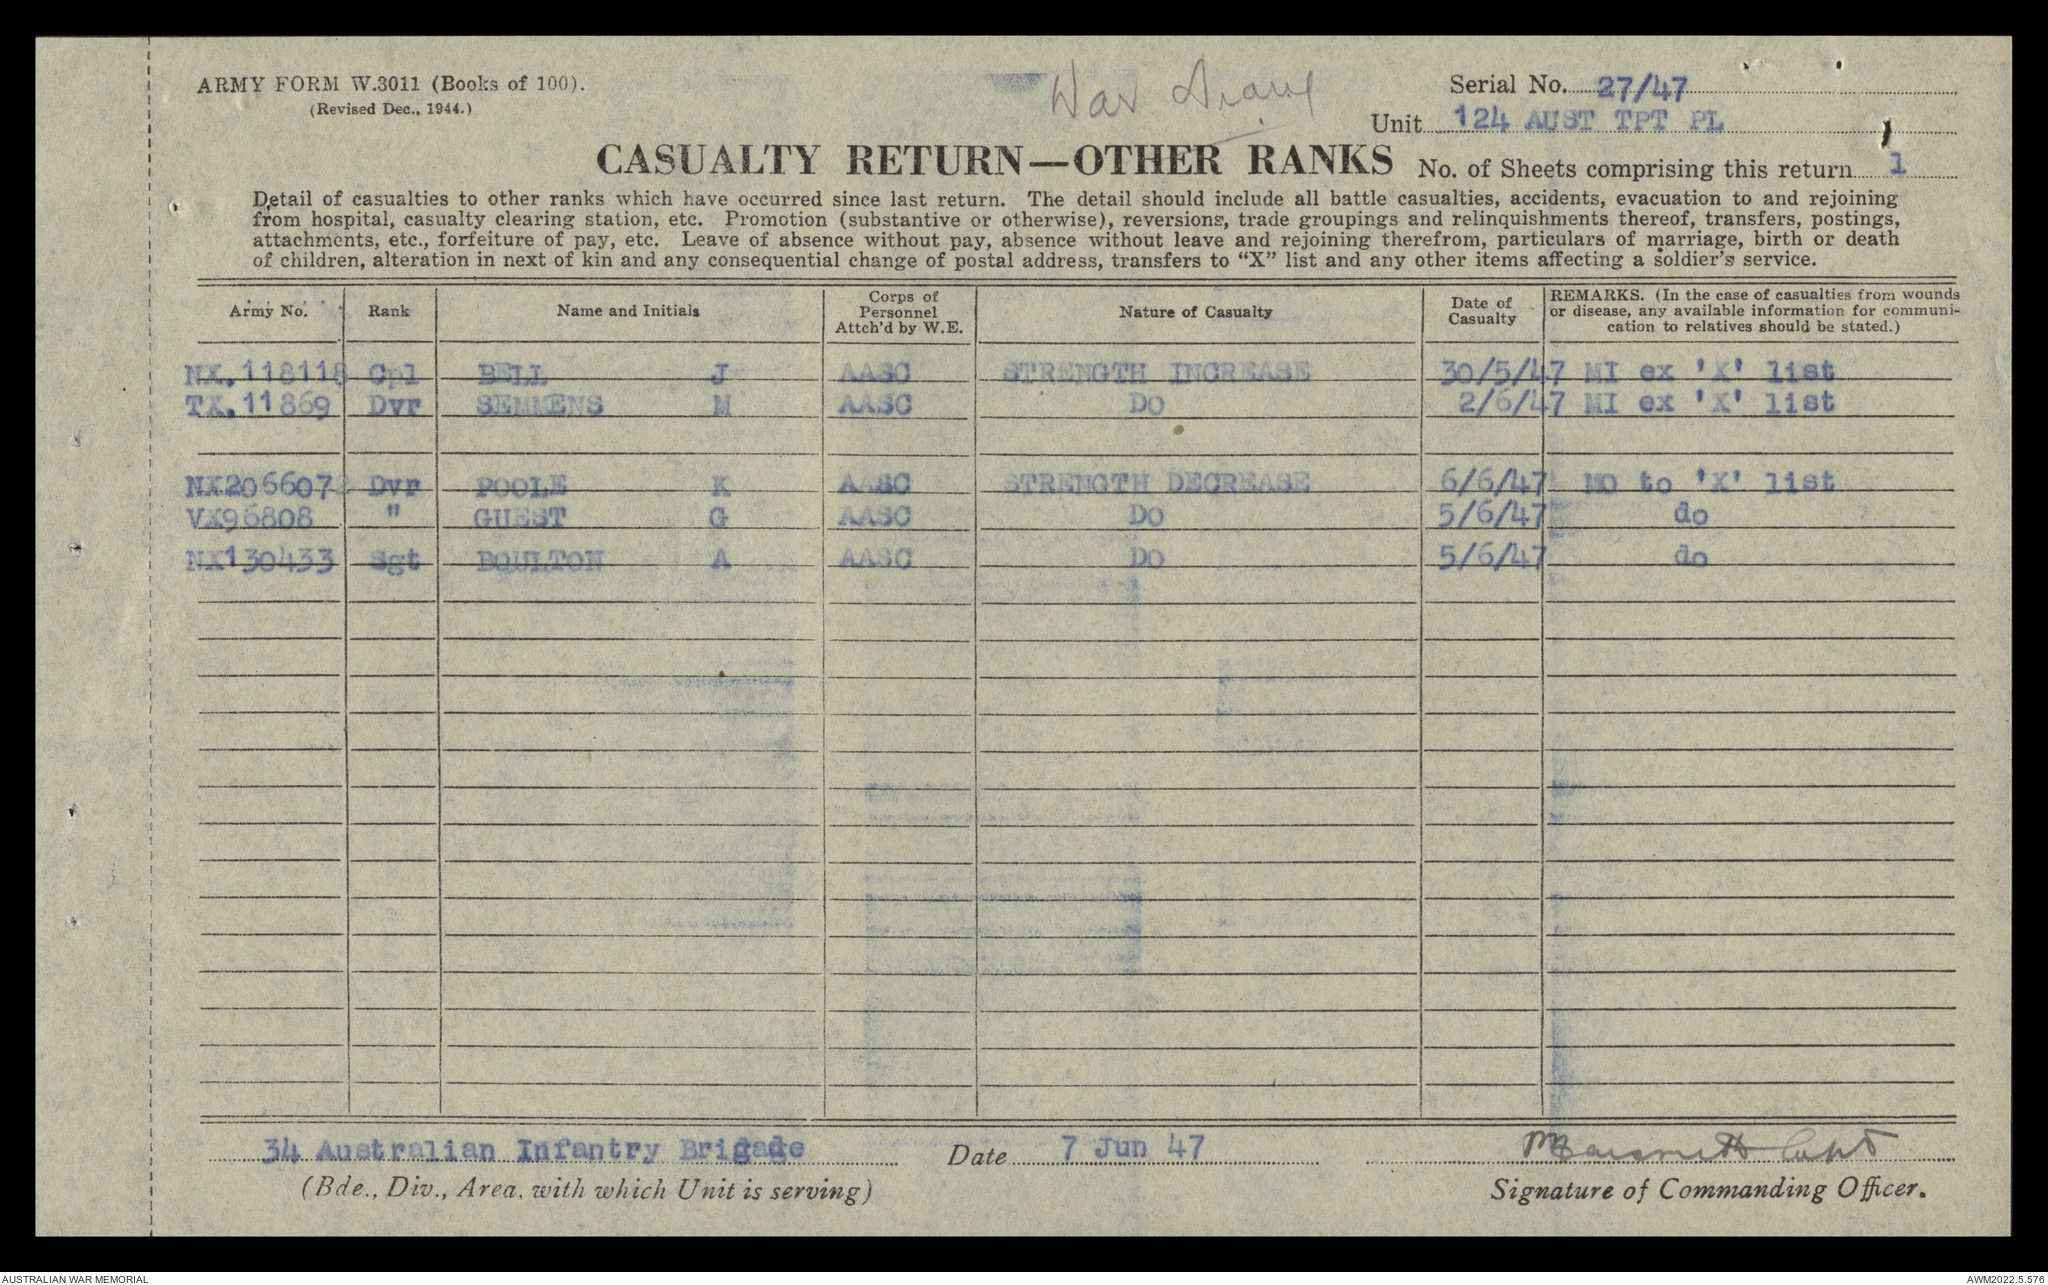 ARMY FORM W.3011 (Books of 100).
(Revised Dec., 1944.)
War Diary
Serial No. 27/47
Unit 124 AUST TPT PL
CASUALTY RETURN—OTHER RANKS
No. of Sheets comprising this return 1
Detail of casualties to other ranks which have occurred since last return. The detail should include all battle casualties, accidents, evacuation to and rejoining
from hospital, casualty clearing station, etc. Promotion (substantive or otherwise), reversions, trade groupings and relinquishments thereof, transfers, postings,
attachments, etc., forfeiture of pay, etc. Leave of absence without pay, absence without leave and rejoining therefrom, particulars of marriage, birth or death
of children, alteration in next of kin and any consequential change of postal address, transfers to "X" list and any other items affecting a soldier's service.
Army No. Rank Name and Initials Corps of Personnel Attch'd by W.E. Nature of Casualty Date of Casualty REMARKS. (In the case of casualties from wounds or disease, any available information for communi-cation to relatives should be stated.)
NX.118118 Cpl BELL J AASC STRENGTH INCREASE 30/5/47 MI ex 'X' list
TX.11869 Dvr SEMMENS M AASC DO 2/6/47 MI ex 'X' list
NX206607 Dvr POOLE K AASC STRENGTH DECREASE 6/6/47 MO to 'X' list
VX96808 " GUEST G AASC DO 5/6/47 do
NX130433 Sgt BOULTON A AASC DO 5/6/47 do
34 Australian Infantry Brigade
Date 7 Jun 47
Capt
(Bde., Div., Area, with which Unit is serving)
Signature of Commanding Officer.
AUSTRALIAN WAR MEMORIAL
AWM2022.5.576